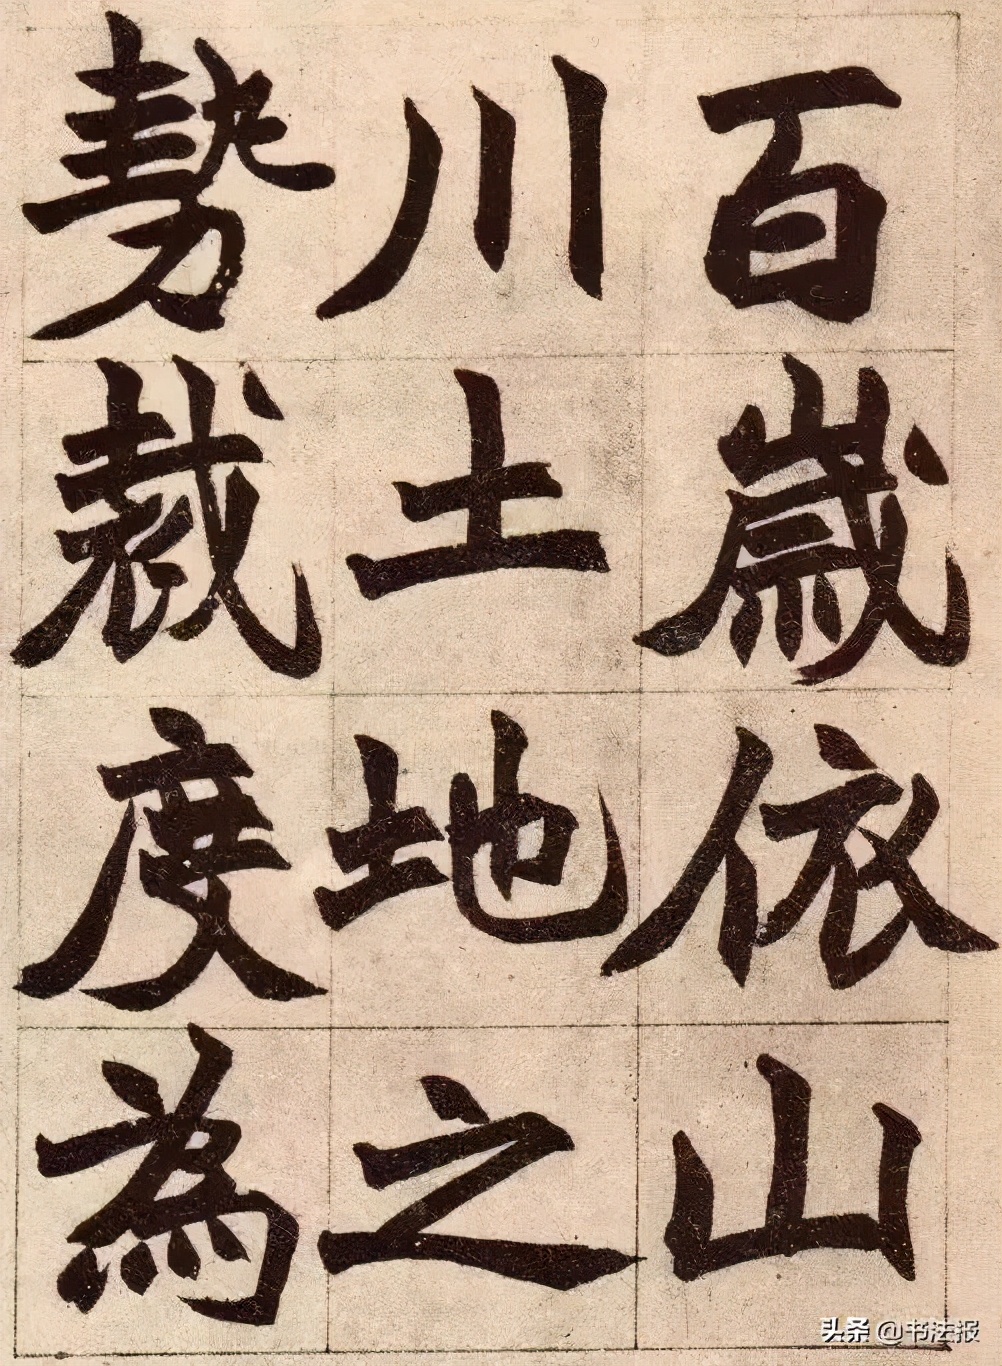 百歲依山
川土地之
勢裁度為
头条 @书法报